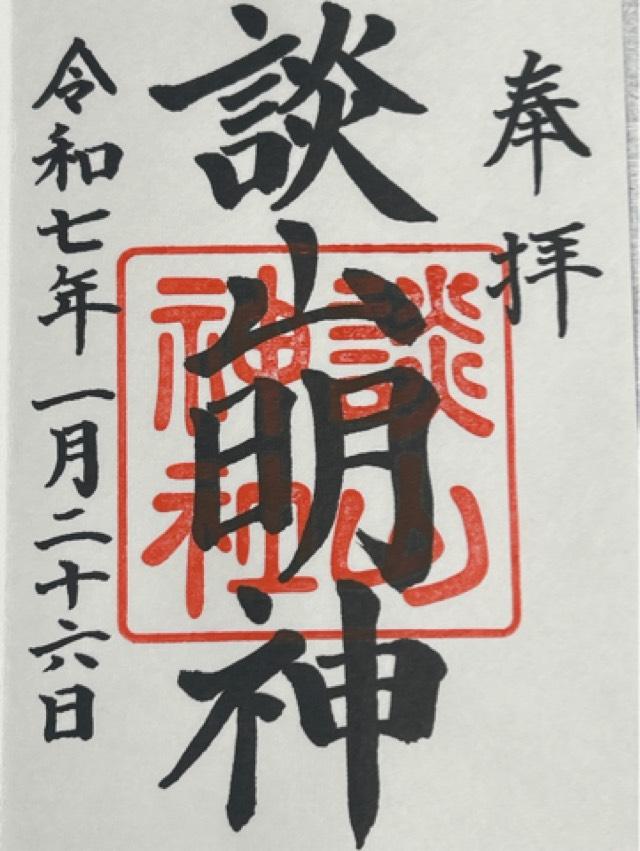 奉拝
談山明神
談山神社
令和七年一月二十六日